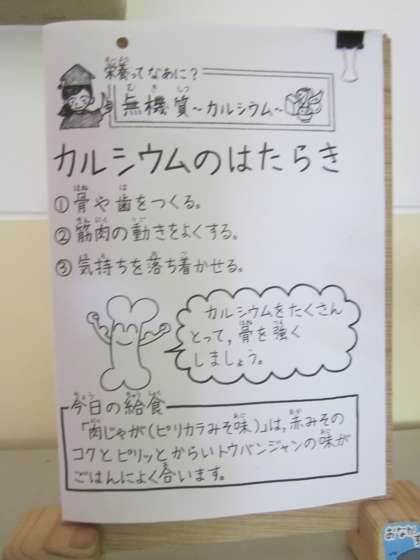 栄養ってなあに？
無機質～カルシウム～
カルシウムのはたらき
①骨や歯をつくる。
②筋肉の動きをよくする。
③気持ちを落ち着かせる。
カルシウムをたくさん
とって、骨を強く
しましょう。
今日の給食
「肉じゃが(ピリカラみそ味)」は、赤みその
コクとピリッとからいトウバンジャンの味が
ごはんによく合います。
おなか